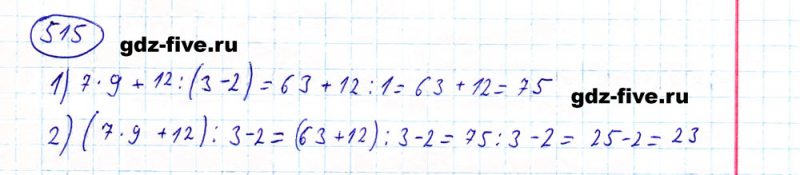 515
gdz-five.ru
1) 7·9 + 12 : (3-2) = 63 + 12 : 1 = 63 + 12 = 75
gdz-five.ru
2) (7·9 + 12) : 3-2 = (63+12) : 3-2 = 75 : 3 - 2 = 25-2 = 23